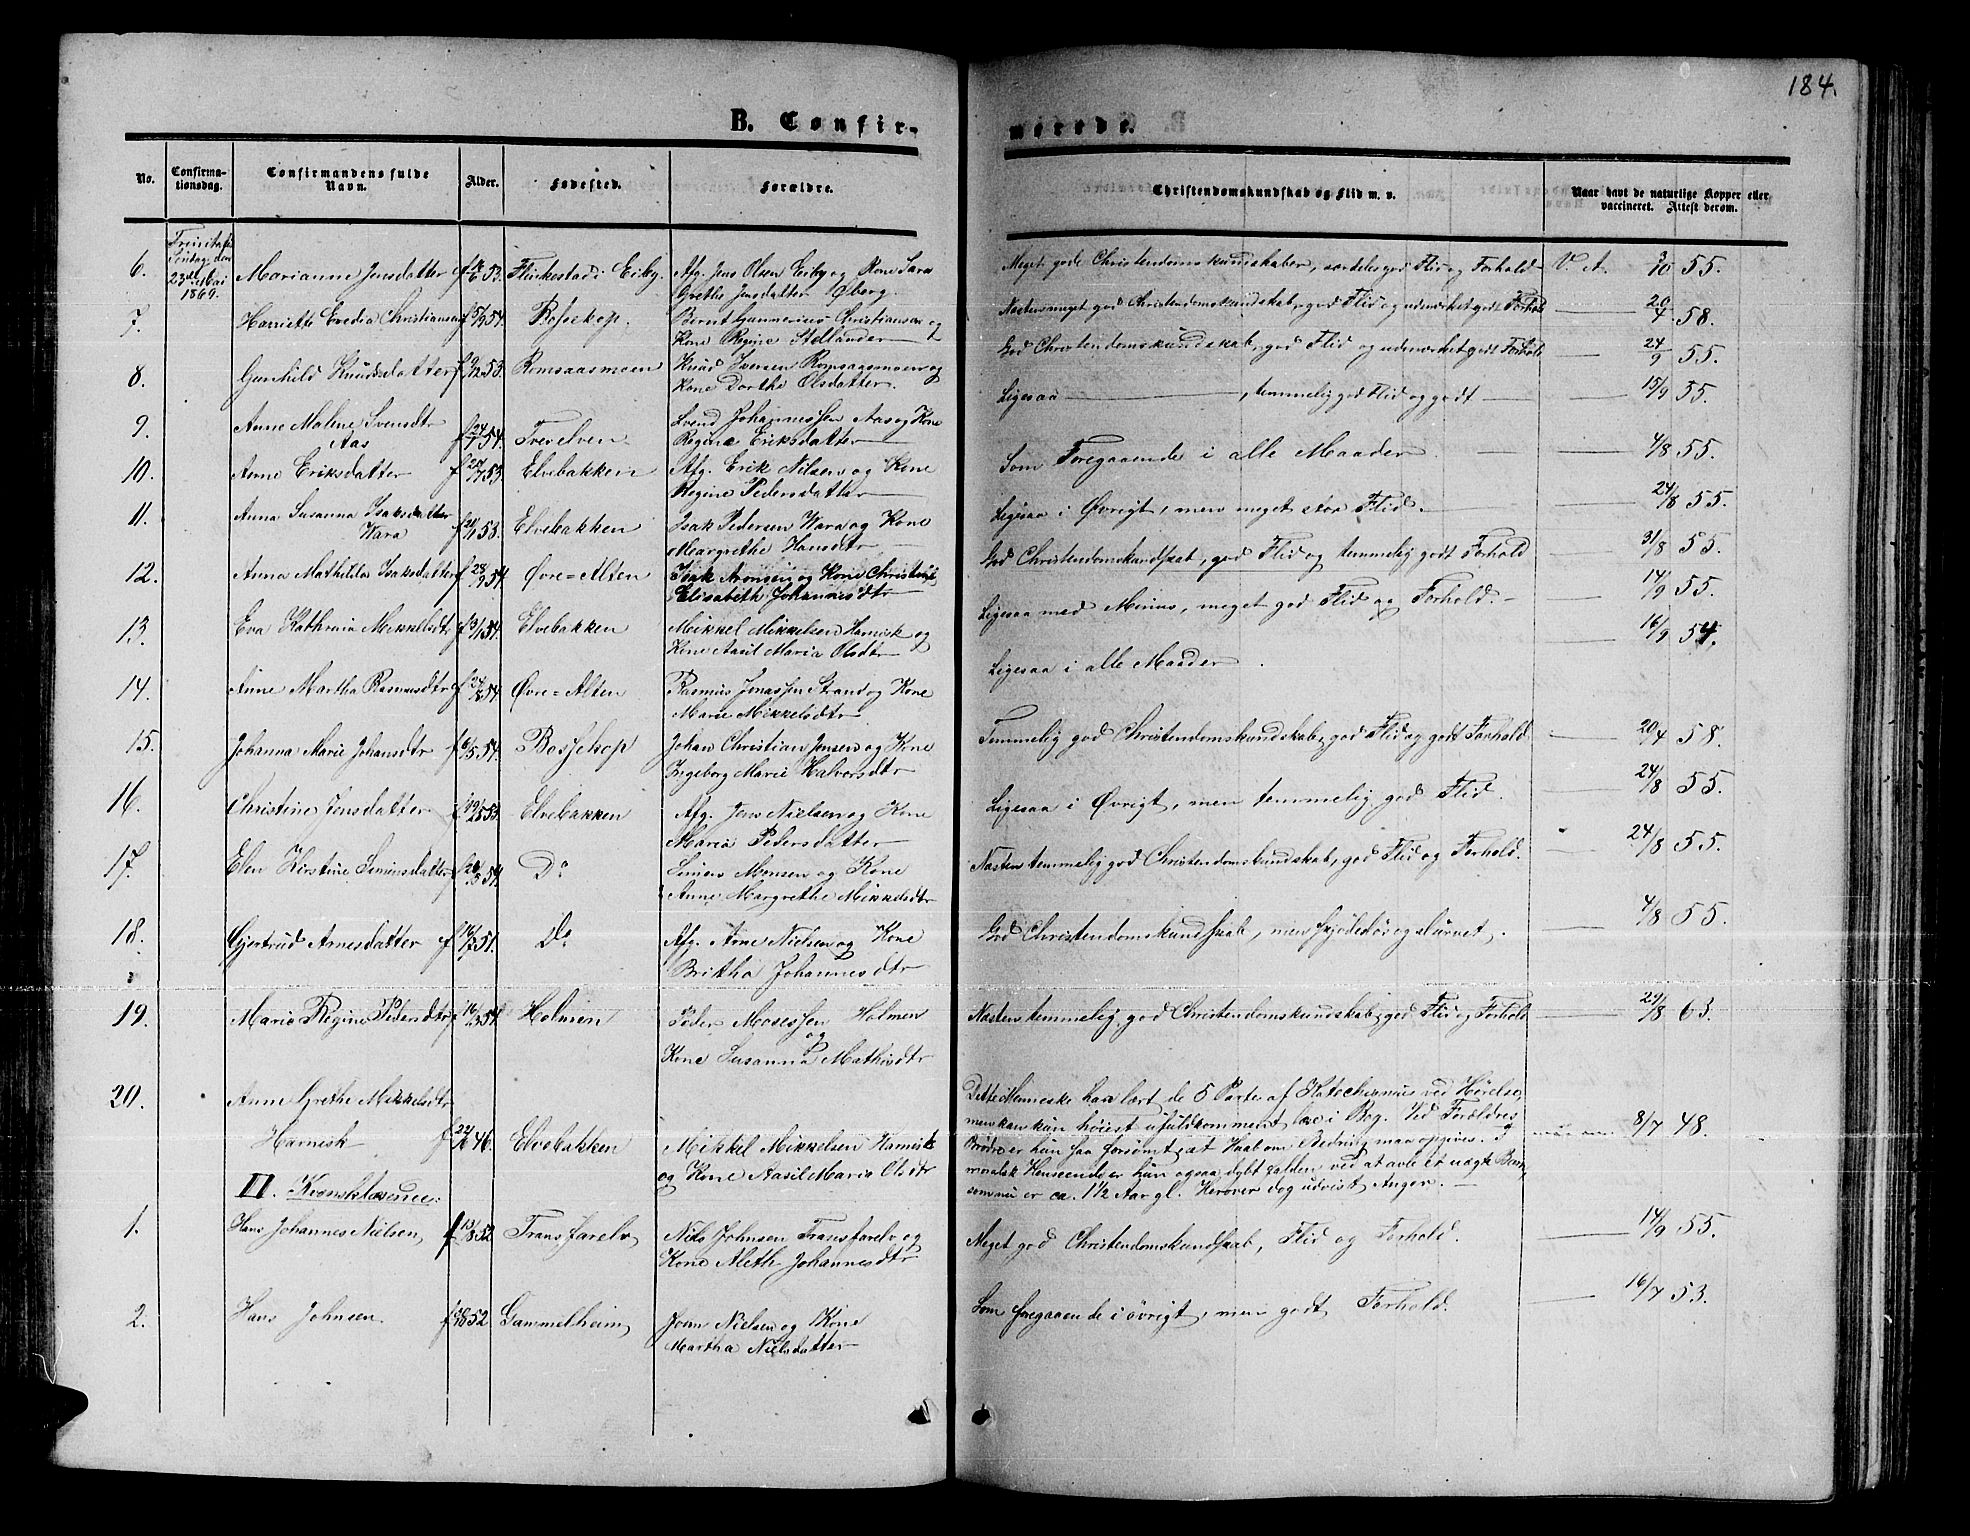 184.
B. Confirmerede.
No.
Confirmationsdag.
Confirmandens fulde Navn.
Alder.
Fødested.
Forældre.
Christendomskundskab og Flid m. v.
Naar havt de naturlige Kopper eller vaccineret. Attest derom.
Søndag den
23de Mai
1869.
6. Marianne Jensdatter f 53. Eiby.
Afg. Jens Olsen Eiby og Kone Sara
Grethe Jensdatter Øberg.
Meget gode Christendomskundskaber, særdeles god Flid og Forhold V. at. 55.
7. Christiansen f 5/9 54. Bossekop.
Bernt Gunnerius Christiansen og
Kone Regine
Næsten meget god Christendomskundskab, god Flid og udmærket godt Forhold 20/4 58.
8. Gunhild Knudsdatter f 53 Romsaasmoen
Knud Iversen Romsaasmoen og
Kone Dorthe Olsdatter.
God Christendomskundskab, god Flid og udmærket godt Forhold 24/9 55.
9. Anne Malene Svendsdtr
Aas f 54. Tverelven
Svend Johannessen Aas og Kone
Regine Eriksdatter
Ligesaa, temmelig god Flid og godt 15/9 55.
10. Anne Eriksdatter f 53. Elvebakken
Afg. Erik Nilsen og Kone
Regine Pedersdatter
Som Foregaaende i alle Maader. 4/8 55.
11. Anna Susanna Isaksdatter
Wara f 53. Elvebakken
Isak Pedersen Wara og Kone
Margrethe Hansdtr
Ligesaa i Øvrigt, men meget stor Flid. 24/8 55.
12. Anna Mathilda Isaksdatter f 28/9 54. Øvre=Alten
Isak Aronsen og Kone Christine
Elisabeth Johannesdtr
God Christendomskundskab, god Flid og temmelig godt Forhold 31/8 55.
13. Eva Kathrina Mikkelsdtr f 3/1 54. Elvebakken
Mikkel Mikkelsen Harnisk og
Kone Aasil Maria Olsdtr
Ligesaa med Minus, meget god Flid og Forhold. 14/9 55.
14. Anne Martha Rasmusdtr f 24/8 54. Øvre=Alten
Rasmus Jonassen Strand og Kone
Marie Mikkelsdtr
Ligesaa i alle Maader. 16/9 54.
15. Johanna Marie Johansdtr f 6/5 54. Bossekop
Johan Christian Jensen og Kone
Ingeborg Marie Halvorsdtr
Temmelig god Christendomskundskab, god Flid og godt Forhold 20/4 58.
16. Christine Jensdatter f 53. Elvebakken
Afg. Jens Nielsen og Kone
Maria Pedersdatter
Ligesaa i Øvrigt, men temmelig god Flid. 24/8 55.
17. Elen Kirstine Simonsdatter f 54. Do
Simon Monsen og Kone
Anne Margrethe Mikkelsdtr
Næsten temmelig god Christendomskundskab, god Flid og Forhold. 24/8 55.
18. Gjertrud Arnesdatter f 51. Do
Afg. Arne Nielsen og Kone
Britha Johannesdtr
God Christendomskundskab, men skjødesløs og slurvet. 4/8 55.
19. Maria Regine Pedersdtr f 16/3 54. Holmen
Peder Mosessen Holmen
og
Kone Susanna Mathisdtr
Næsten temmelig god Christendomskundskab, god Flid og Forhold 29/8 63.
20. Anne Grethe Mikkelsdtr
Harnisk f 46. Elvebakken
Mikkel Mikkelsen Harnisk
og Kone Aasil Maria Olsdtr
Dette Menneske har lært de 5 Parter af Katechismus ved Hørelse,
men kan kun høiest ufuldkomment læse i Bog. Ved Forældres
Brøde er hun saa forsømt, at Haab om Bedring maa opgives. I
moralsk Henseende er hun ogsaa dybt falden ved at avle et uægte Barn,
som nu er ca. 1½ Aar gl. Herover dog udvist Anger.
8/7 48.
II. Kvensktalende:
1. Hans Johannes Nielsen f 13/8 52 Transfarelv
Nils Johnsen Transfarelv og
Kone Aleth Johannesdtr
Meget god Christendomskundskab, Flid og Forhold. 14/9 55.
2. Hans Johnsen f 52 Gammelheim
John Nielsen og Kone
Martha Nielsdatter
Som foregaaende i øvrigt, men godt Forhold. 16/7 53.